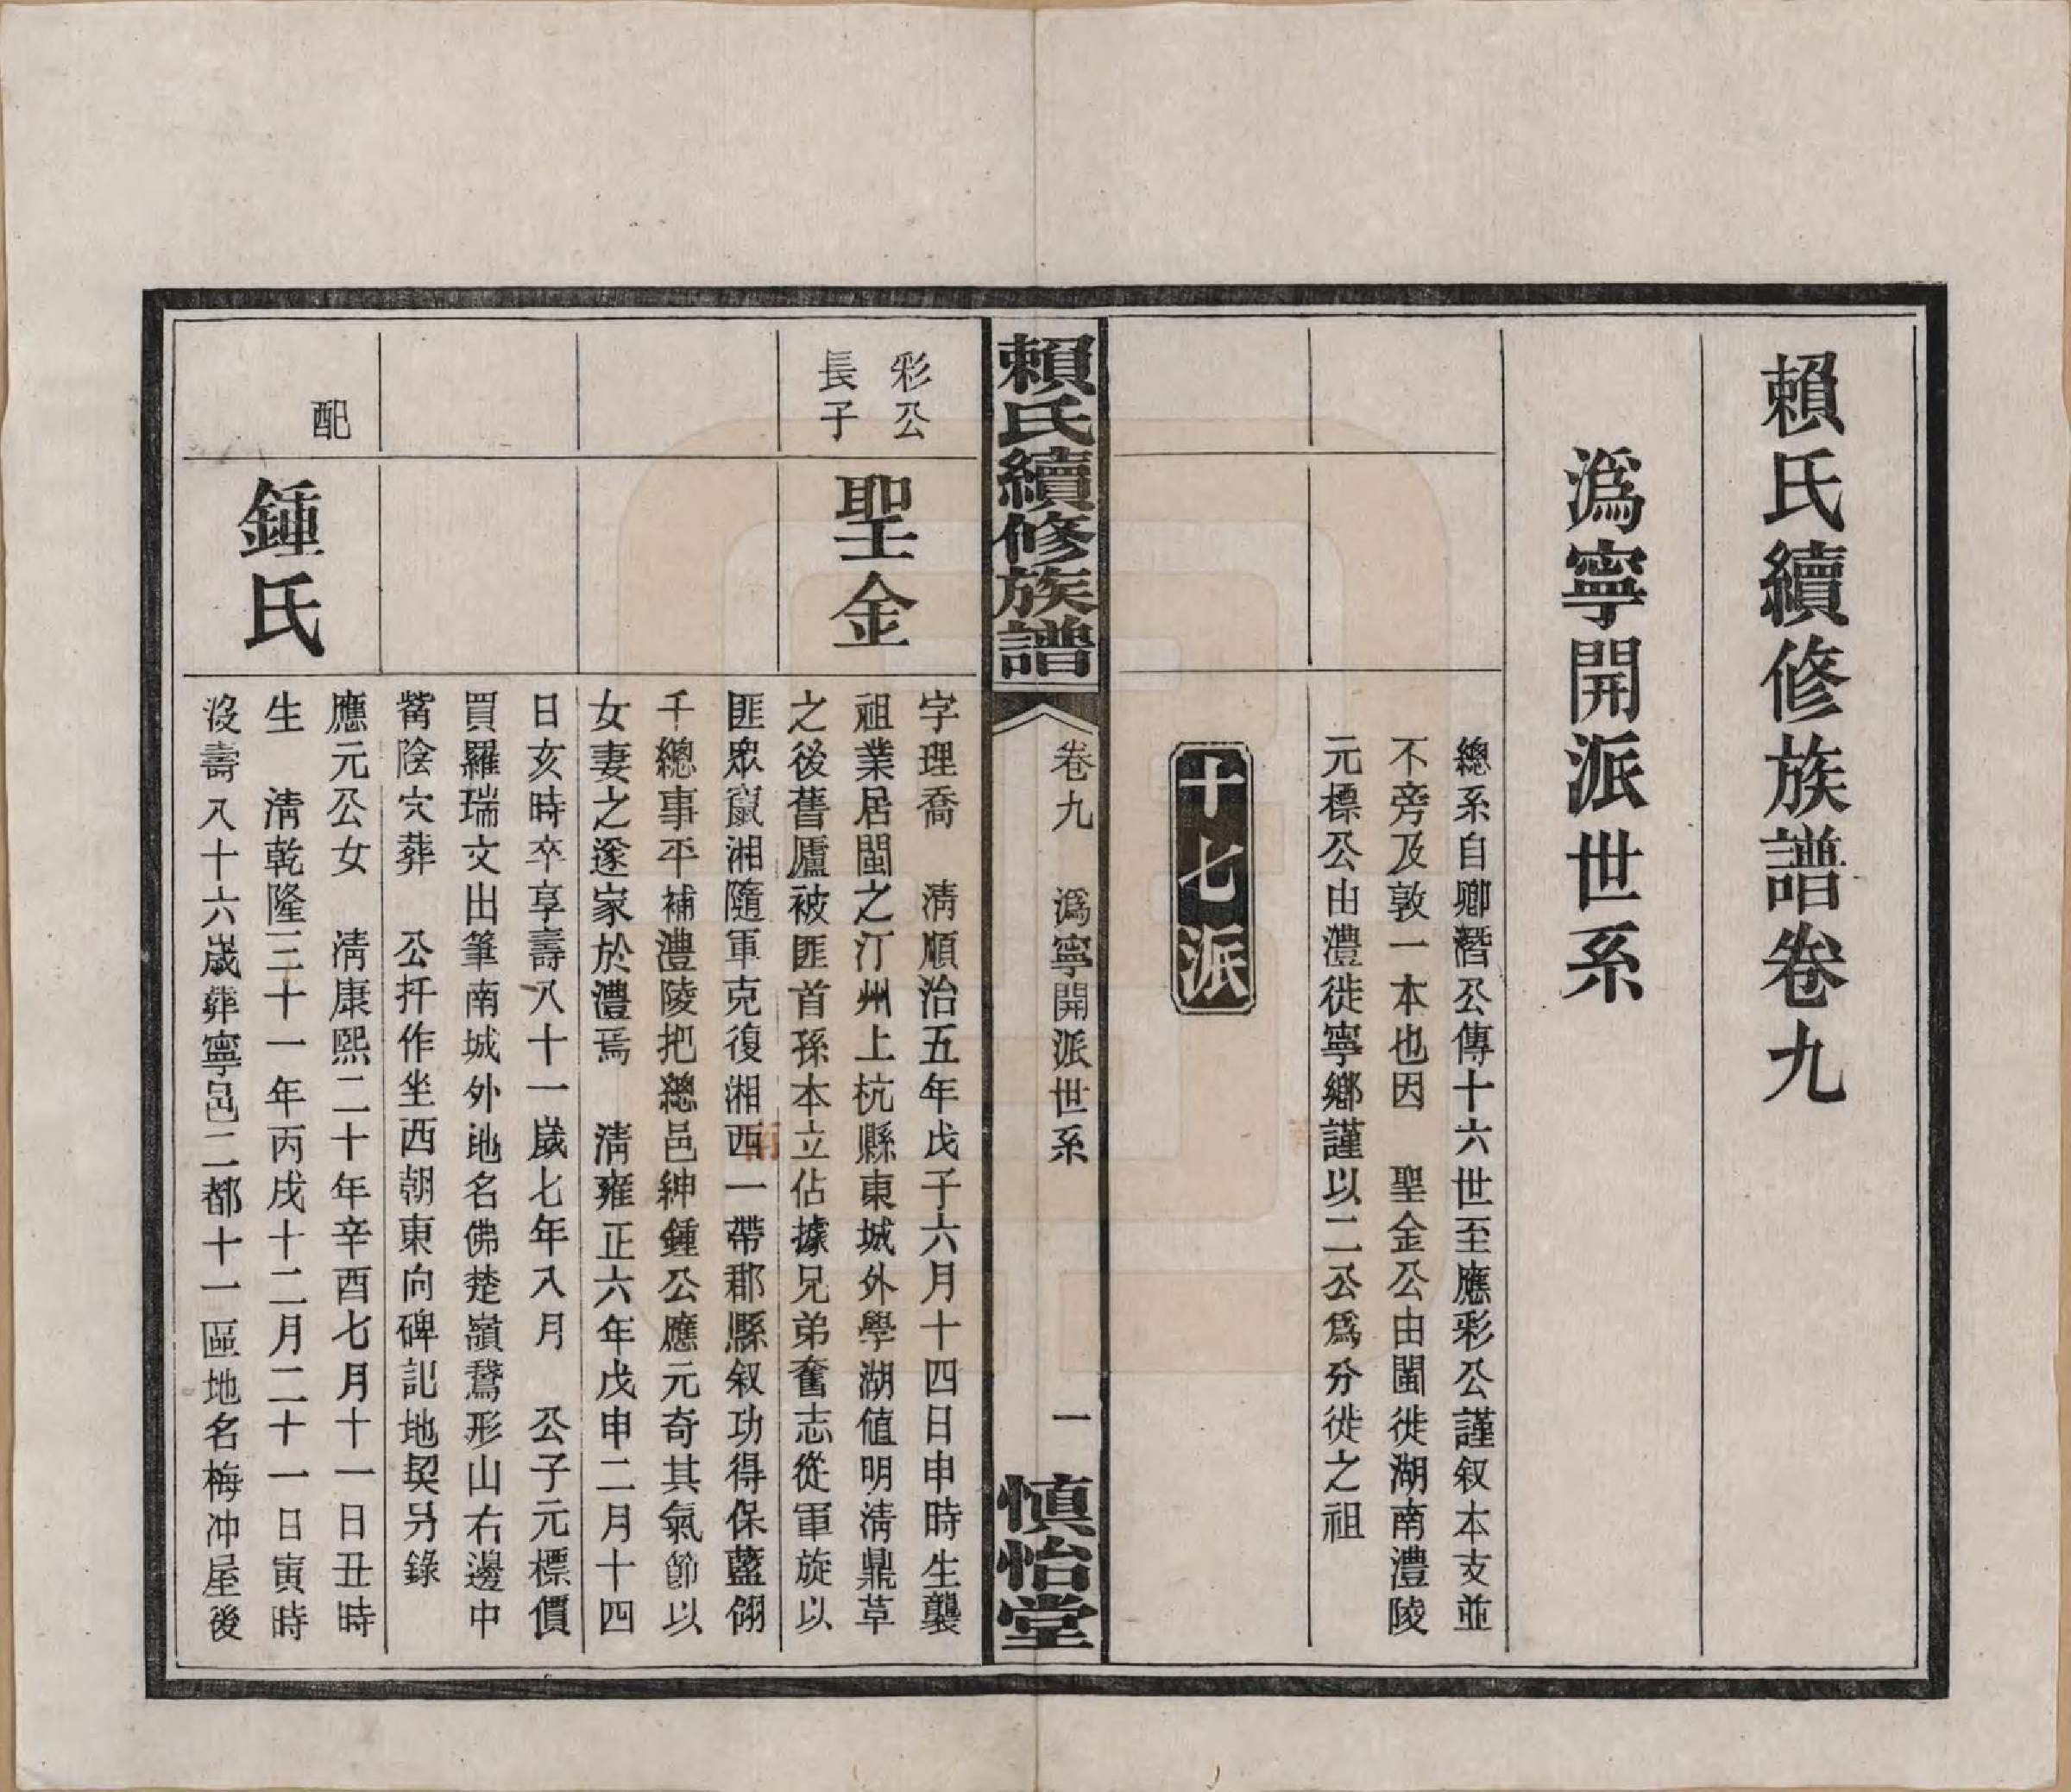 賴氏續修族譜卷九
潙寧開派世系
總系自卿潛公傳十六世至應彩公謹叙本支並
不旁及敦一本也因　聖金公由閩徙湖南澧陵
元標公由澧徙寧鄉謹以二公爲分徙之祖
十七派
賴氏續修族譜
卷九　潙寧開派世系
一
慎怡堂
彩公
長子
聖金
字理喬　清順治五年戊子六月十四日申時生襲
祖業居閩之汀州上杭縣東城外學湖值明清鼎革
之後舊廬被匪首孫本立佔據兄弟奮志從軍旋以
匪眾竄湘隨軍克復湘西一帶郡縣叙功得保藍翎
千總事平補澧陵把總邑紳鍾公應元奇其氣節以
女妻之遂家於澧焉　清雍正六年戊申二月十四
日亥時卒享壽八十一歲七年八月　公子元標價
買羅瑞文出筆南城外地名佛楚嶺鵞形山右邊中
觜陰穴葬　公扦作坐西朝東向碑記地契另錄
配
鍾氏
應元公女　清康熙二十年辛酉七月十一日丑時
生　清乾隆三十一年丙戌十二月二十一日寅時
沒壽八十六歲葬寧邑二都十一區地名梅冲屋後